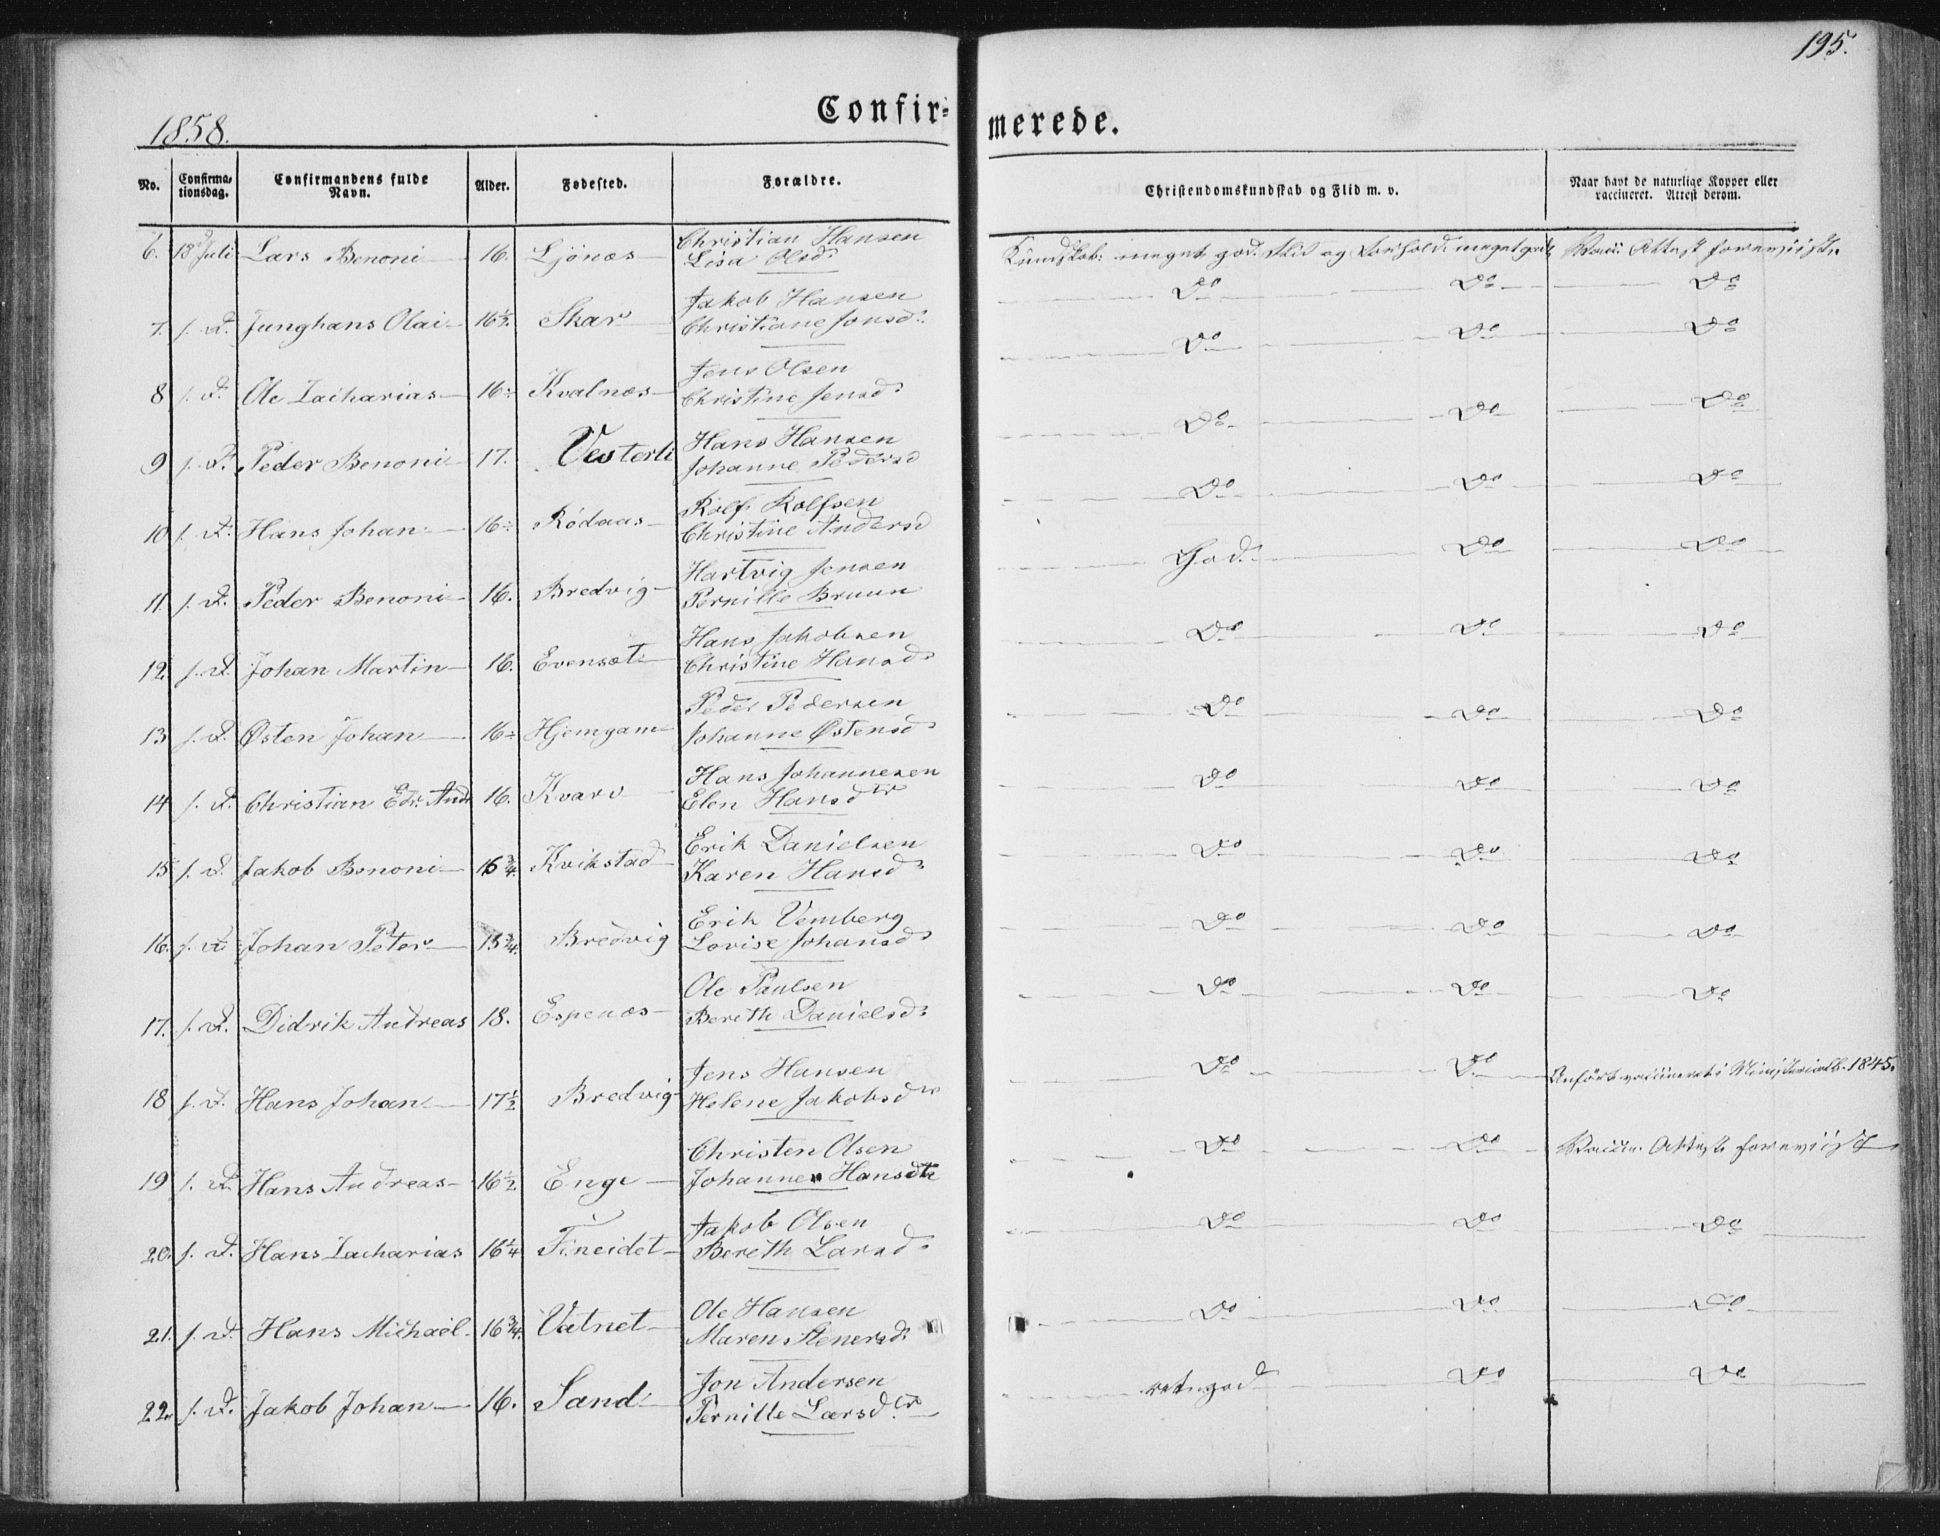 195.
1858.
Confir=
merede.
No. Confirma-tionsdag. Confirmandens fulde Navn. Alder. Fødested. Forældre. Christendomskundskab og Flid m. v. Naar havt de naturlige Kopper eller vaccineret. Attest derom.
Christian Hansen
6. 18 Juli Lars Benoni 16. Ljönæs Lisa Olsd. Kundskab: meget god. Flid og Forhold: meget godt Attest forevist.
Jakob Hansen Do Do Do
7. f. D. Junghans Olai 16½. Skar Christiane Jonsd.
Do Do Do
Jens Olsen
8 f. D. Ole Zacharias 16. Kvalnæs Christine Jensd.
Do Do Do
Hans Hansen
9 f. D. Peder Benoni 17. Vesterli Johanne Pedersd
Do Do Do
Rolf Rolfsen
10 f. D. Hans Johan 16. Rödaas Christine Andersd
God. Do Do
Hartvig Jensen
11. f. D. Peder Benoni 16. Bredvig Pernille Bruun
Hans Jakobsen Do Do Do
12. f. D. Johan Martin 16. Evensæt Christine Hansd.
Peder Pedersen Do Do Do
13 f. D. Østen Johan 16. Hjemgam Johanne Østensd.
Hans Johannesen Do Do Do
14 f. D. Christian Edv. Andr 16. Kvarv Elen Hansdtr
Erik Danielsen Do Do Do
15 f. D. Jakob Benoni 16¾. Kvikstad Karen Hansd.
Erik Vemberg Do Do Do
16. f. D. Johan Peter 15¾. Bredvig Lovise Johansd.
Ole Paulsen Do Do Do
17. f. D. Didrik Andreas 18. Espenæs Bereth Danielsd.
Jens Hansen Do Do Anfört vaccineret i Ministerialb. 1845.
18 f. D. Hans Johan 17½ Bredvig Helene Jakobsdtr
Christen Olsen Do Do Attest forevist
19 f. D. Hans Andreas 16½ Enge Johanne Hansdtr
Jakob Olsen Do Do Do
20. f. D. Hans Zacharias 16¼ Fineidet Bereth Larsd.
Ole Hansen Do Do Do
21. f. D. Hans Michael. 16¾. Vatnet Maren Stenersd.
Jon Andersen retgod Do Do
22. f. D. Jakob Johan 16. Sand Pernille Larsdtr